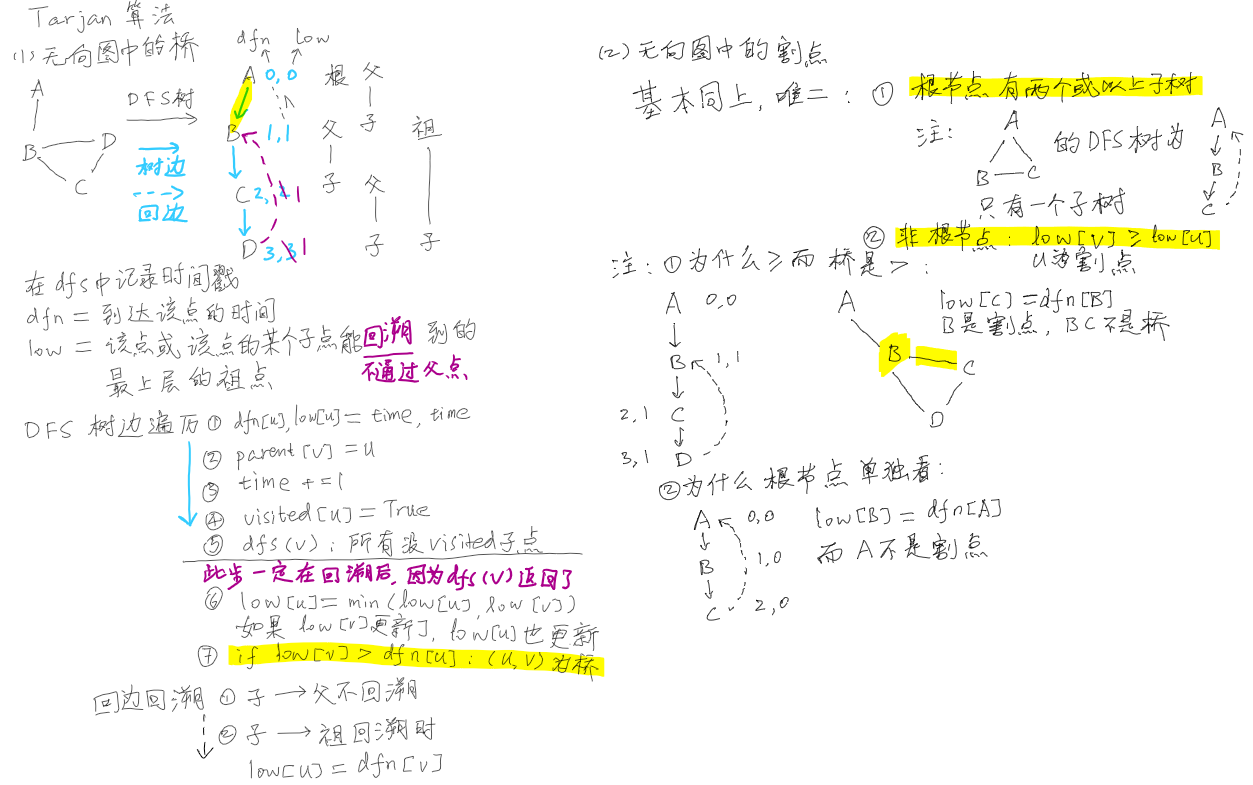 Tarjan 算法
(1) 无向图中的桥
dfn low
A
B
C
D
DFS树
树边
回边
A 0,0
B 1,1
C 2,2 1
D 3,3 1
根 父
子
父 祖
子 父
子 子
在dfs中记录时间戳
dfn = 到达该点的时间
low = 该点或该点的某个子点能回溯到的
不通过父点
最上层的祖点
DFS 树边遍历 ① dfn[u],low[u]= time, time
② parent[v] = u
③ time += 1
④ visited[u] = True
⑤ dfs(v) : 所有没visited子点
此步一定在回溯后,因为dfs(v)返回了
⑥ low[u]= min(low[u], low[v])
如果 low[v]更新了, low[u]也更新
⑦ if low[v] > dfn[u] : (u,v)为桥
回边回溯 ① 子 → 父不回溯
② 子 → 祖回溯时
low[u] = dfn[v]
(2) 无向图中的割点
基本同上, 唯二 : ① 根节点有两个或以上子树
注:
A
B C
的DFS树为
A
B
C
只有一个子树
② 非根节点 : low[v] ≥ low[u]
u为割点
注: ①为什么≥而 桥是> :
A 0,0
B 1,1
2,1 C
3,1 D
A
B
C
D
low[C] = dfn[B]
B是割点, BC不是桥
②为什么 根节点 单独看:
A 0,0
B 1,0
C 2,0
low[B] = dfn[A]
而 A不是割点